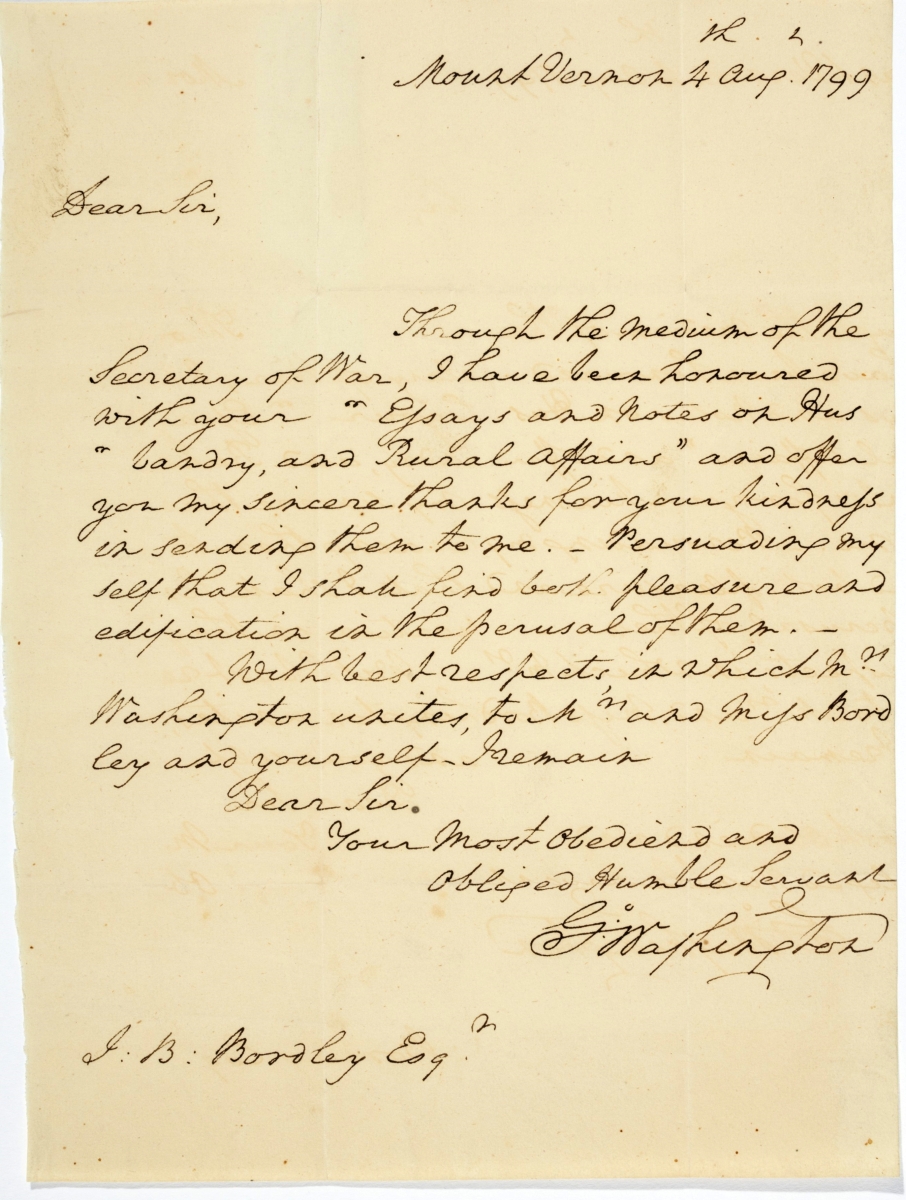 Mount Vernon 4th Augr. 1799
Dear Sir,
Through the medium of the
Secretary of War, I have been honoured
with your "Eſsays and Notes on Hus
"bandry, and Rural Affairs" and offer
you my sincere thanks for your kindneſs
in sending them to me. – Persuading my
self that I shall find both pleasure and
edification in the perusal of them. –
With best respects, in which Mrs
Washington unites, to Mrs and Miſs Bord
ley and yourself – I remain
Dear Sir.
Your Most Obedient and
Obliged Humble Servant
Go: Waſhington
J: B: Bordley Esqr.